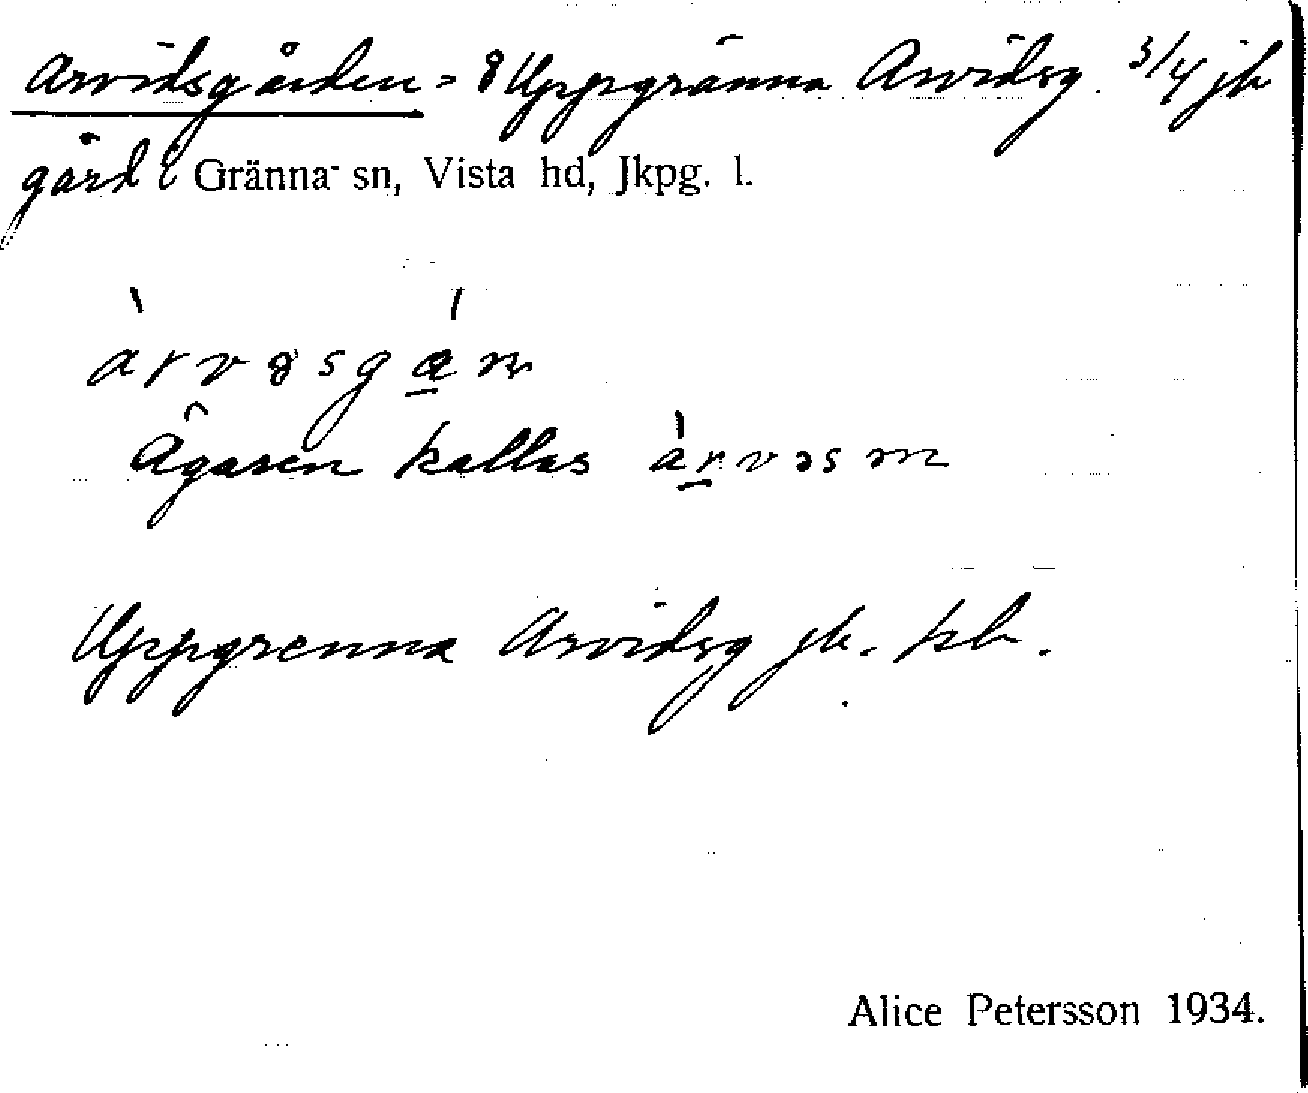 Arvidsgården = 8 Uppgränna Arvidsg. 3/4 jb
gård i Gränna sn, Vista hd, Jkpg. l.
Ägaren kallas arvəsm
Uppgrenna Arvidsg jb. kb.
Alice Petersson 1934.